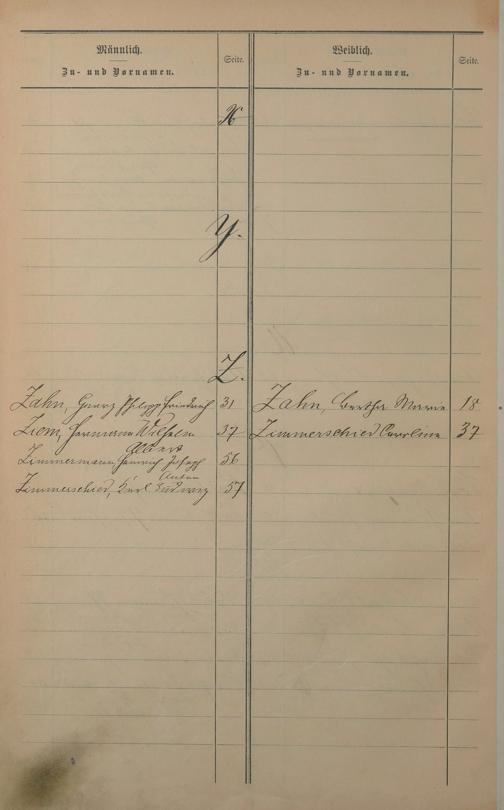 Männlich.
Zu- und Vornamen.
Seite.
Weiblich.
Zu- und Vornamen.
Seite.
X
Y.
Z.
Zahn, Georg Philipp Friedrich 31
Ziem, Hermann Wilhelm 37
Albert
Zimmermann, Heinrich Joseph 56
Anton
Zimmerschied, Karl Ludwig 57
Zahn, Bertha Marie 18
Zimmerschied Caroline 37